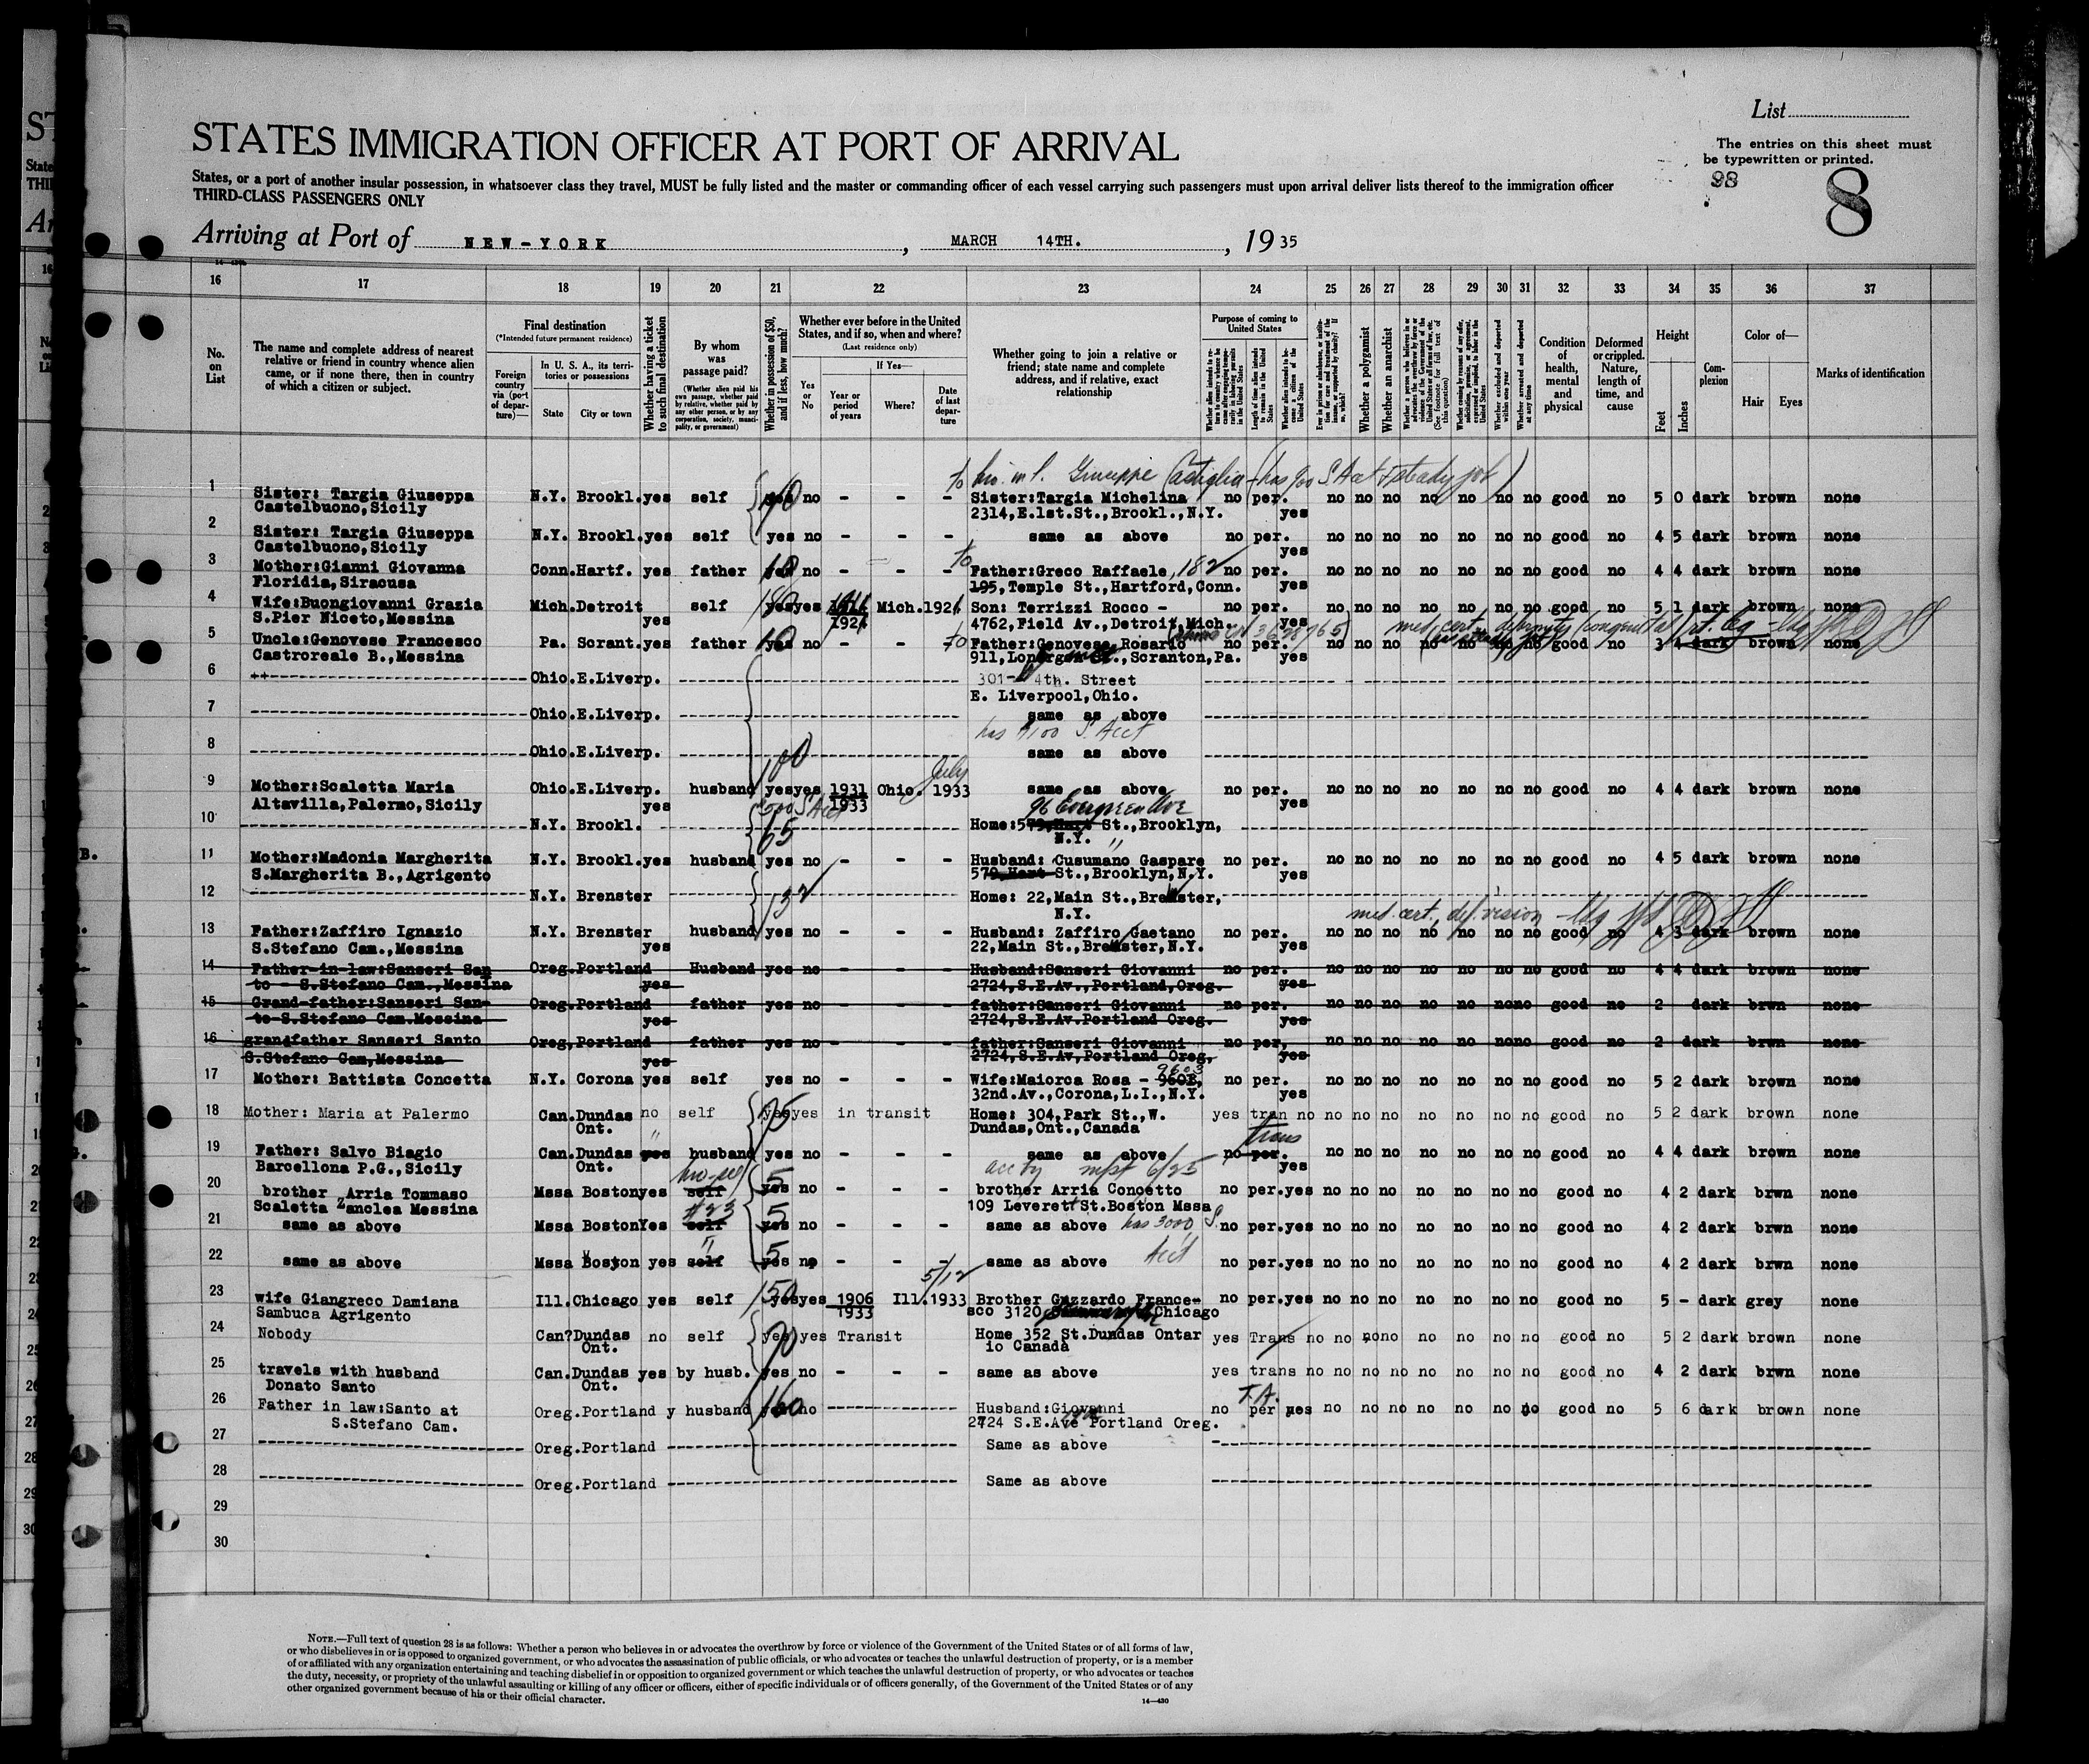 List
STATES IMMIGRATION OFFICER AT PORT OF ARRIVAL
The entries on this sheet must
be typewritten or printed.
States, or a port of another insular possession, in whatsoever class they travel, MUST be fully listed and the master or commanding officer of each vessel carrying such passengers must upon arrival deliver lists thereof to the immigration officer
THIRD-CLASS PASSENGERS ONLY
98
8
Arriving at Port of NEW-YORK, MARCH 14TH., 1935
16 17 18 19 20 21 22 23 24 25 26 27 28 29 30 31 32 33 34 35 36 37
No. on List
The name and complete address of nearest relative or friend in country whence alien came, or if none there, then in country of which a citizen or subject.
Final destination
(*Intended future permanent residence)
Foreign country via (port of departure)—
In U. S. A., its territories or possessions
State
City or town
Whether having a ticket to such final destination
By whom was passage paid?
(Whether alien paid his own passage, whether paid by relative, whether paid by any other person, or by any corporation, society, municipality, or government)
Whether in possession of $50, and if less, how much?
Whether ever before in the United States, and if so, when and where?
(Last residence only)
Yes or No
If Yes—
Year or period of years
Where?
Date of last departure
Whether going to join a relative or friend; state name and complete address, and if relative, exact relationship
Purpose of coming to United States
Length of time alien intends to remain in the United States
Whether alien intends to become a citizen of the United States
Whether a polygamist
Whether an anarchist
Whether excluded and deported within one year
Whether arrested and deported at any time
Condition of health, mental and physical
Deformed or crippled. Nature, length of time, and cause
Height
Feet
Inches
Complexion
Color of—
Hair
Eyes
Marks of identification
to bro. in l. Giuseppe Castiglia (has 900 S Act + steady job)
1 Sister: Targia Giuseppa N.Y. Brookl. yes self yes no - - - Sister:Targia Michelina no per. no no no no no no no good no 5 0 dark brown none
Castelbuono,Sicily 2314,E.1st.St.,Brookl.,N.Y. yes
2 Sister: Targia Giuseppa N.Y. Brookl. yes self yes no - - - same as above no per. no no no no no no no good no 4 5 dark brown none
Castelbuono,Sicily yes
3 Mother:Gianni Giovanna Conn.Hartf. yes father no - - - to Father:Greco Raffaele, 182 no per. no no no no no no no good no 4 4 dark brown none
Floridia,Siracusa 195, Temple St., Hartford, Conn. yes
4 Wife:Buongiovanni Grazia Mich.Detroit self yes yes Mich. 1924 Son: Terrizzi Rocco - no per. no no no no no no no good no 5 1 dark brown none
S.Pier Niceto, Messina yes 1924 4762,Field Av.,Detroit,Mich. yes
med cert. deformity (congenital) rt. leg
5 Uncle:Genovese Francesco Pa. Scrant. yes father no - - to Father:Genovese Rosario no per. no no no good no 3 4 dark brown none
Castroreale B.,Messina 911, St.,Scranton,Pa. yes
6 Ohio.E.Liverp. 301- 4th. Street
E. Liverpool,Ohio.
7 Ohio.E.Liverp. same as above
has $100 S. Acct
8 Ohio.E.Liverp. 100 same as above
July
9 Mother:Scaletta Maria Ohio.E.Liverp. husband yes yes 1931 Ohio. 1933 same as above no per. no no no no no no no good no 4 4 dark brown none
Altavilla,Palermo,Sicily yes 500 S Acct 1933 96 Evergreen Ave yes
10 N.Y. Brookl. 65 Home:579, Hart St.,Brooklyn,
N.Y.
11 Mother:Madonia Margherita N.Y. Brookl. yes husband yes no - - - Husband: Cusumano Gaspare no per. no no no no no no no good no 4 5 dark brown none
S.Margherita B.,Agrigento 579,Hart St.,Brooklyn,N.Y. yes
12 N.Y. Brenster 132 Home: 22,Main St., Brewster,
N.Y.
med. cert. def. vision
13 Father:Zaffiro Ignazio N.Y. Brenster husband yes no - - - Husband: Zaffiro Gaetano no per. no no no no no no no good no 4 3 dark brown none
S.Stefano Cam.,Messina yes 22,Main St.,Brewster,N.Y. yes
14 Father-in-law:Sanseri San Oreg.Portland Husband yes no - - - Husband:Sanseri Giovanni no per. no no no no no no no good no 4 4 dark brown none
to - S.Stefano Cam.,Messina yes 2724,S.E.Av.,Portland,Oreg. yes
15 Grand-father:Sanseri San- Oreg.Portland father yes no - - - father:Sanseri Giovanni no per. no no no no no no no good no 2 dark brwn none
to-S.Stefano Cam.Messina yes 2724,S.E.Av.Portland Oreg. yes
16 grandfather Sanseri Santo Oreg,Portland father yes no - - - father:Sanseri Giovanni no per, no no no no no no no good no 2 dark brwn none
S.Stefano Cam,Messina yes 2724,S.E.Av,Portland Oreg, yes
17 Mother: Battista Concetta N.Y. Corona yes self yes no - - - Wife:Maiorca Rosa - 9603 no per. no no no no no no no good no 5 2 dark brown none
32nd.Av.,Corona,L.I.,N.Y. yes
18 Mother: Maria at Palermo Can.Dundas no self 75 yes in transit Home: 304,Park St.,W. yes tran no no no no no no no no good no 5 2 dark brown none
Ont. Dundas,Ont.,Canada
trans
19 Father: Salvo Biagio Can.Dundas yes husband yes no - - - same as above no per. no no no no no no no good no 4 4 dark brown none
Barcellona P.G.,Sicily Ont. yes
20 brother Arria Tommaso Mssa Boston yes self 5 no - - - brother Arria Concetto no per.yes no no no no no no no good no 4 2 dark brwn none
Scaletta Zanclea Messina 109 Leverett St.Boston Mssa
21 same as above Mssa Boston Yes self 5 no - - - same as above has 3000 S. no per.yes no no no no no no no good no 4 2 dark brwn none
22 same as above Mssa Boston yes self 5 no - - - same as above Acct no per.yes no no no no no no no good no 4 2 dark brwn none
5/12
23 wife Giangreco Damiana Ill.Chicago yes self 150 yes 1906 Ill. 1933 Brother Gazzardo France- no per.yes no no no no no no no good no 5 - dark grey none
Sambuca Agrigento 1933 sco 3120 Chicago
24 Nobody Can?Dundas no self 90 yes Transit Home 352 St.Dundas Ontar yes Trans no no no no no no no no good no 5 2 dark brown none
Ont. io Canada
25 travels with husband Can.Dundas yes by husb. yes no - - - same as above yes trans no no no no no no no no good no 4 2 dark brwn none
Donato Santo Ont.
T.A.
26 Father in law:Santo at Oreg.Portland y husband 160 no Husband:Giovanni no per yes no no no no no no no good no 5 6 dark brown none
S.Stefano Cam. 2724 S.E.Ave Portland Oreg.
27 Oreg.Portland Same as above
28 Oreg.Portland Same as above
29
30
NOTE.—Full text of question 28 is as follows: Whether a person who believes in or advocates the overthrow by force or violence of the Government of the United States or of all forms of law,
or who disbelieves in or is opposed to organized government, or who advocates the assassination of public officials, or who advocates or teaches the unlawful destruction of property, or is a member
of or affiliated with any organization entertaining and teaching disbelief in or opposition to organized government or which teaches the unlawful destruction of property, or who advocates or teaches
the duty, necessity, or propriety of the unlawful assaulting or killing of any officer or officers, either of specific individuals or of officers generally, of the Government of the United States or of any
other organized government because of his or their official character.
14—430